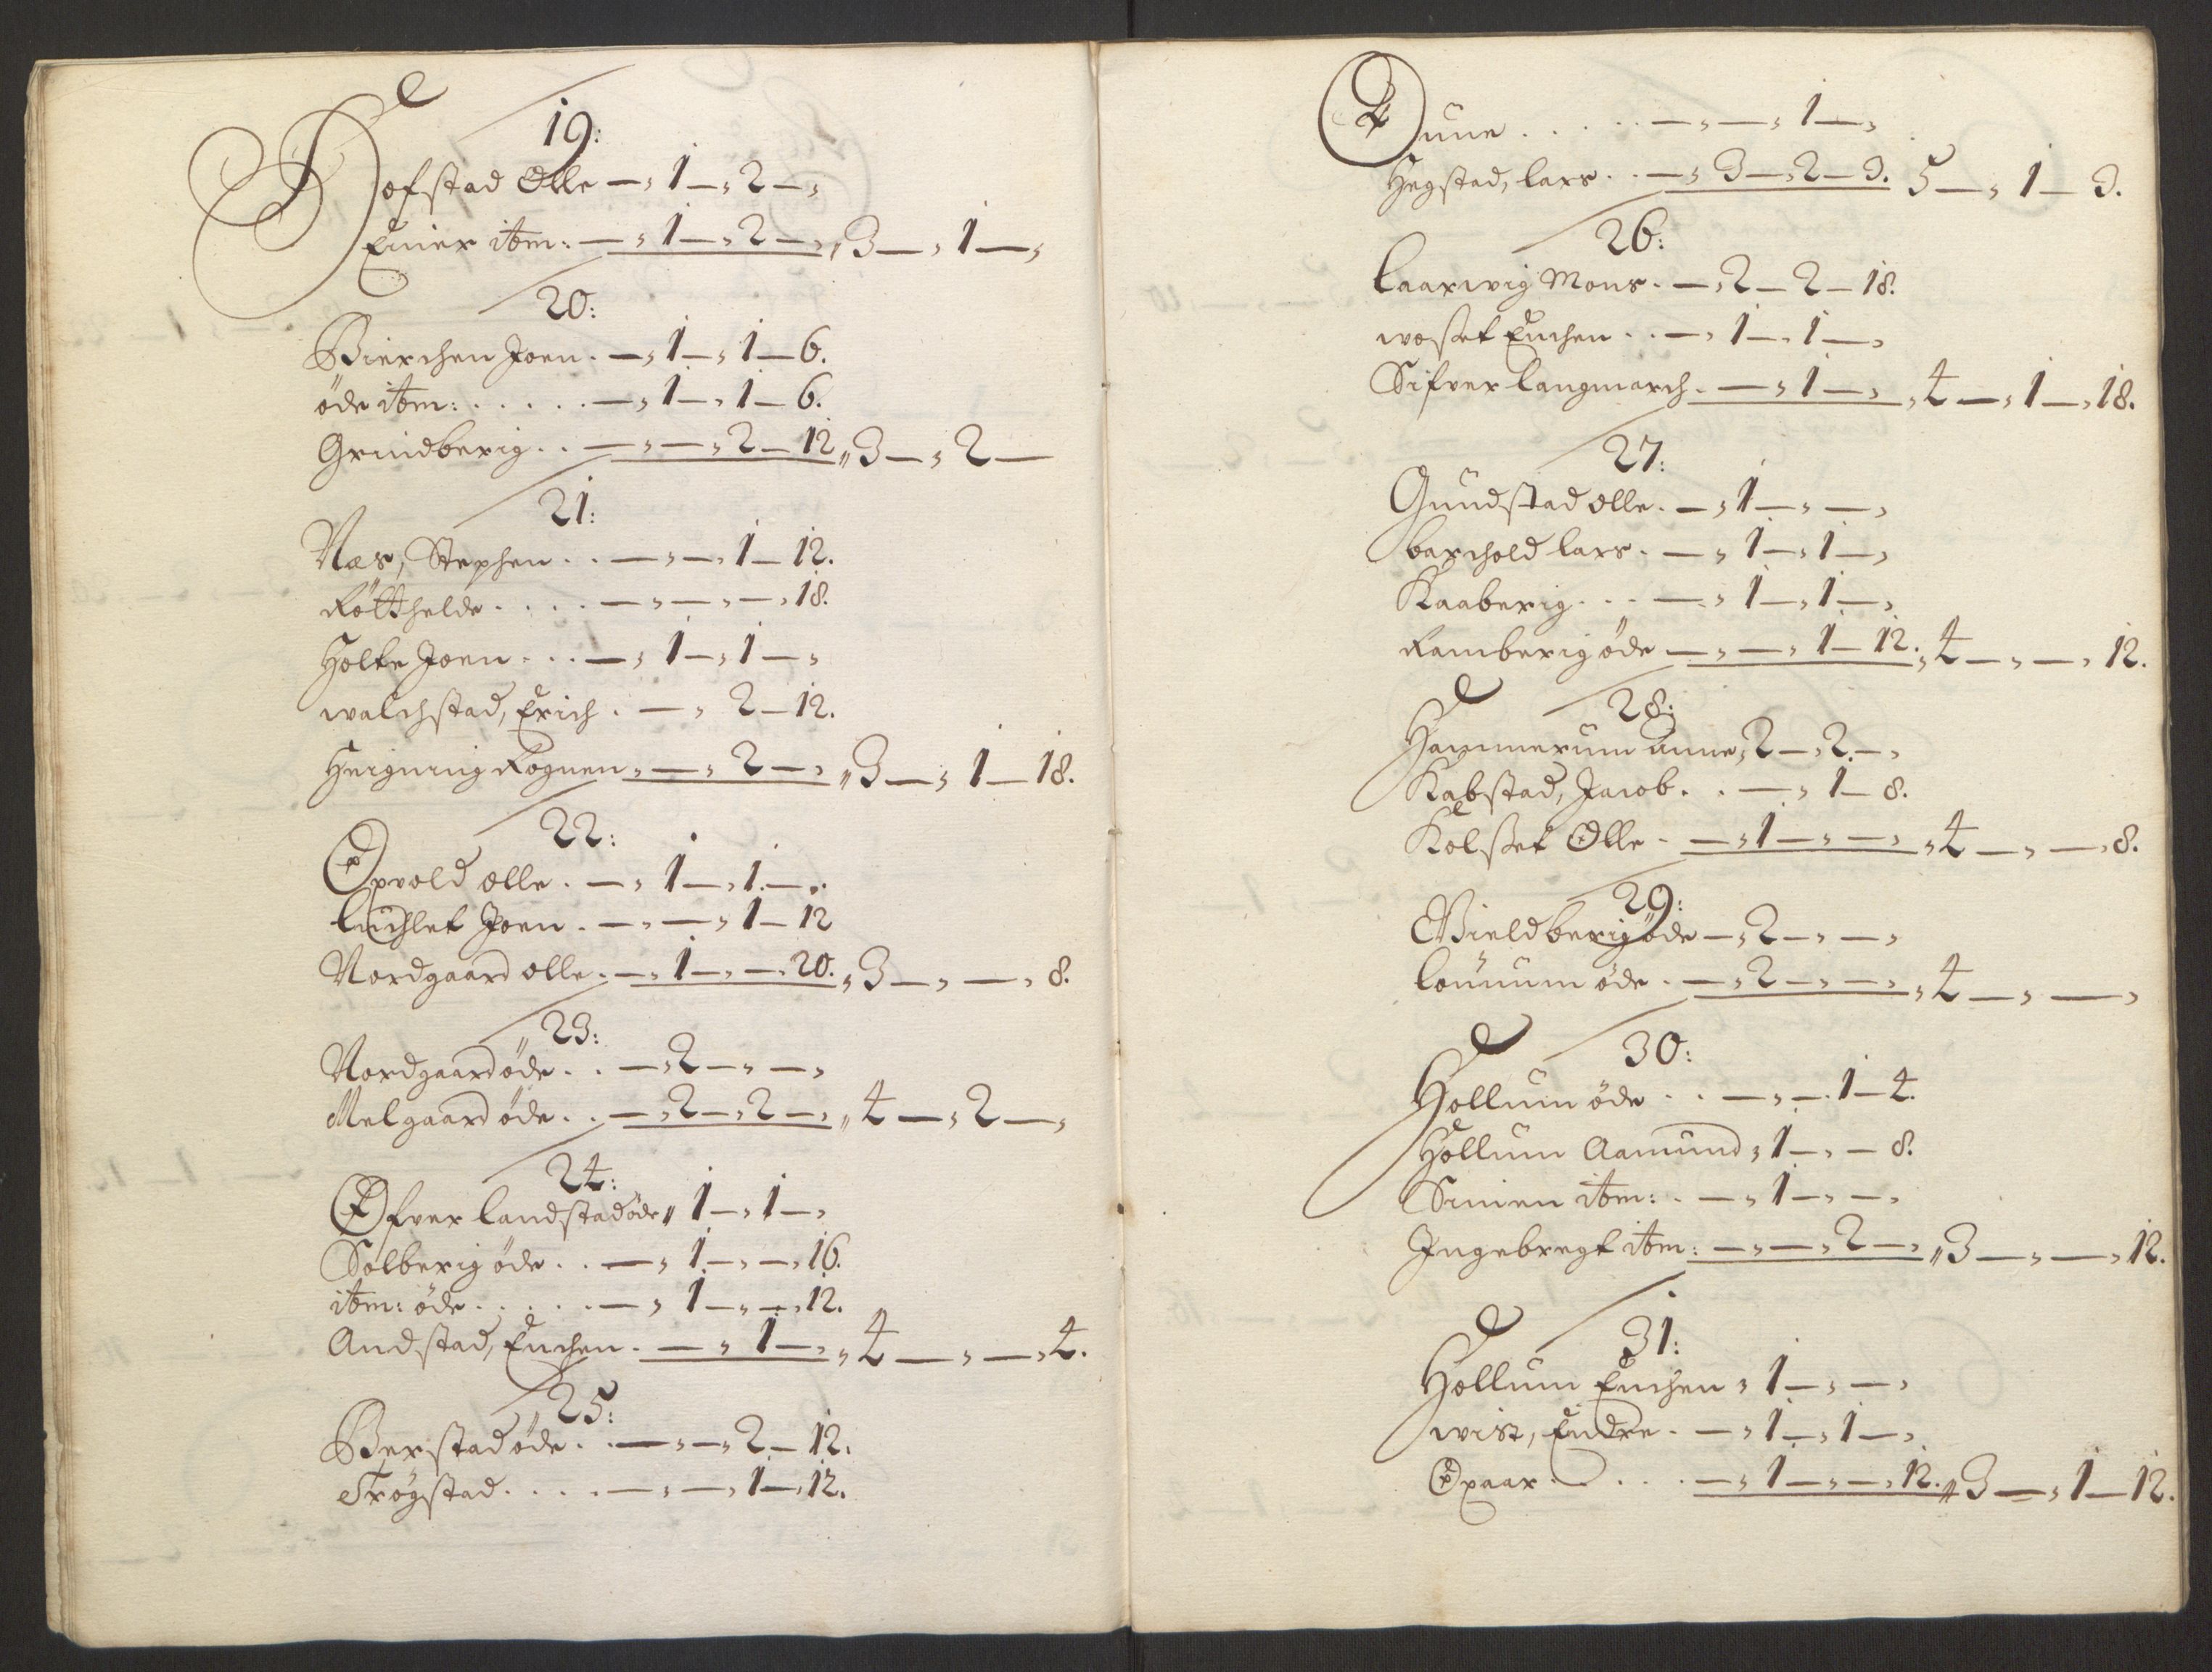 19:
Hofstad Olle — , 1 — , 2 — ,
Einer itm: — , 1 — , 2 — , , 3 — , 1 — ,
20:
Bierchen Joen . — , 1 — , 1 — 6.
öde itm: . . . . . — , 1 — , 1 — 6.
Grindberig . . — , — , 2 — 12 „ 3 — , 2 —
21:
Næs, Stephen . . — , — , 1 — 12.
Rötthelde . . . . — , — , — , 18.
Holte Joen . . . — , 1 — , 1 — ,
walchstad, Erich . — , 2 — 12.
Rognen , — , 2 — , „ 3 — , 1 — 18.
22:
Opvold olle . — , 1 — , 1 — ,
Joen . — , — , 1 — 12
Nordgaard olle . — , 1 — , — , 20. , 3 — , — , 8.
23:
Nordgaard öde . . — , 2 — , — ,
Melgaard öde . . — , 2 — , 2 — , „ 4 — , 2 — ,
24:
Öfver landstad öde „ 1 — , 1 — ,
Solberig öde . . — , 1 — , — , 16.
itm: öde . . . . . — , 1 — , — , 12.
Andstad, Enchen . — , 1 — , „ 4 — , — , 4.
25:
Berstad öde . . — , — , 2 — 12.
Trögstad . . . . — , — , 1 — , 12.
Tune . . . . . — , — , 1 — ,
Hegstad, lars . . — , 3 — , 2 — 3. 5 — , 1 — 3.
26:
Laarwig Mons . — , 2 — 2 — 18.
woßet Enchen . . — , 1 — , 1 — ,
Sifver langmarch . — , 1 — , , 4 — , 1 — , 18.
27:
Gundstad olle . — , 1 — , — ,
barchold lars . — , 1 — , 1 — ,
Kaaberig . . . — , 1 — , 1 — ,
Ramberig öde — , — , 1 — 12. , 4 — , — , 12.
28:
Hammerum Anne , 2 — , 2 — ,
Kabstad, Jacob . . — , 1 — 8.
Kolset Olle . — , 1 — , — , , 4 — , — , 8.
29:
Wieldberig öde — , 2 — , — ,
öde . — , 2 — , — , , 4 — , — ,
30:
Hollum öde . . — , — . 1 — 4.
Hollum Aamund , 1 — , — 8.
Simen itm: . — , 1 — , — ,
Ingebregt itm: — , — , 2 — , „ 3 — , — , 12.
31:
Hollum Enchen , 1 — , — ,
wist, Endre . — , 1 — , 1 — ,
Opaar . . . . — , 1 — , — , 12. „ 3 — , 1 — 12.